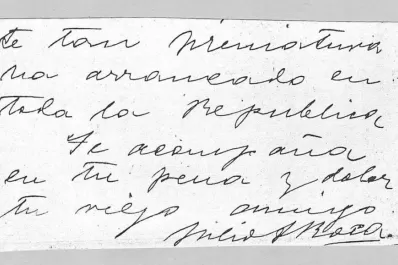 te tan prematura
ha arrancado en
toda la Republica
Te acompaña
en tu pena y dolor
tu viejo amigo
Julio A Roca.